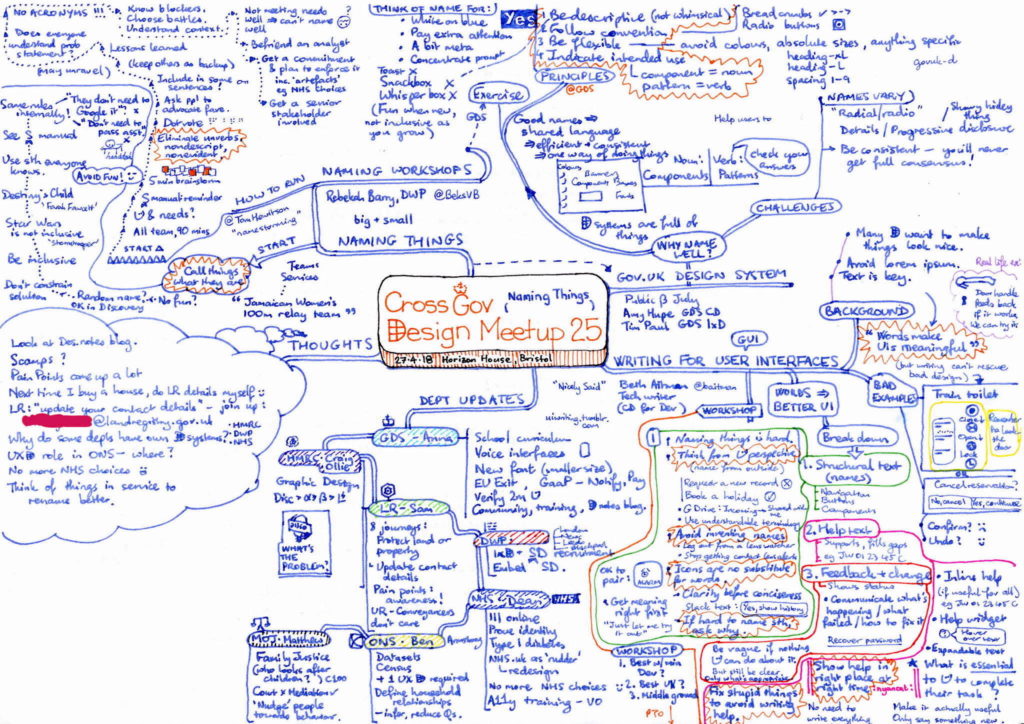 Cross Gov
Design Meetup 25
"Naming Things"
27·4·18 Horizon House, Bristol
NAMING THINGS
NAMING WORKSHOPS
Rebekah Barry, DWP @BeksVB
big + small
HOW TO RUN
START
Call things
what they are
Teams
Services
"Jamaican Women's
100m relay team"
NO ACRONYMS!!!
Does everyone
understand prob
statement?
(may unravel)
Know blockers.
Choose battles.
Understand context.
Lessons learned
(keep others as backup)
Include in some on
sentences?
Ask ppl to
advocate fave.
Dot vote
Eliminate unverbs,
nondescript,
nonevident
5 min brainstorm
5 manual reminder
& needs?
All team, 90 mins
START
Same rules
internally!
"They don't need to
Google it"
"Don't need to
pass asst.
See 5 manual
Use sth everyone
knows.
AVOID FUN!
Destiny's Child
'Farrah Fawcett'
Star Wars
is not inclusive
'Stormtrooper'
Be inclusive
Don't constrain
solution
Random name?
OK in Discovery
No fun!
Not meeting needs?
Well => can't name
well
Befriend an analyst
Get a commitment
& plan to enforce it
inc. 'artefacts'
eg NHS Choices
Get a senior
stakeholder
involved
THINK OF NAME FOR:
White on blue
Pay extra attention
A bit meta
Concentrate proud
Toast X
Snackbox X
Whisper box X
(Fun when new,
not inclusive as
you grow)
Exercise
GDS
Yes
1 Be descriptive (not whimsical)
2 Follow convention
3 Be flexible — avoid colours, absolute sizes, anything specific
4 Indicate intended use
component = noun
pattern = verb
PRINCIPLES
@GDS
Breadcrumbs
Radio buttons
heading-XL
heading-L
spacing 1-9
govuk-d
NAMES VARY
"Radial/radio"
Showy hidey
thing
Details / Progressive disclosure
Be consistent — you'll never
get full consensus!
Good names =>
shared language
=> efficient + consistent
=> one way of doing things
Help users to
Noun:
Components
Verb:
Patterns
check your
answers
Colours
Banners
Component Boxes
Fonts
systems are full of
things
CHALLENGES
WHY NAME
WELL?
GOV.UK DESIGN SYSTEM
Public β July
Amy Hupe GDS CD
Tim Paul GDS IxD
WRITING FOR USER INTERFACES
GUI
BACKGROUND
Many want to make
things look nice.
Avoid lorem ipsum.
Text is key.
Real life ex:
Door handle
"Words make
UIs meaningful"
(but writing can't rescue
bad designs)
"Nicely Said"
Beth Aitman @baitman
Tech writer
(CD for Dev)
uiwriting.tumblr.com
WORDS =>
BETTER UI
BAD
EXAMPLES
Train toilet
Close
Open
Lock
Remember
to lock
the
door
OR
Cancel reservation?
No, cancel Yes, continue
Confirm?
Undo?
WORKSHOP
Break down
1. Structural text
(names)
Navigation
Buttons
Components
2. Help text
Supports, fills gaps
eg JW 01 23 45 C
3. Feedback + change
Shows status
Communicate what's
happening / what
failed / how to fix it
Recover password
1
Naming things is hard.
Think from perspective
(name from outside)
Request a new record
Book a holiday
G Drive: Incoming → Shared with me
Use understandable terminology
Avoid inventing names
Icons are no substitute
for words.
Clarity before conciseness
Slack text: Yes, show history
If hard to name sth,
ask why
OK to
pair:
Get meaning
right first
"Just let me try
it out"
WORKSHOP
1. Best w/ min
Dev?
2. Best UX?
3. Middle ground
PTO
Be vague if nothing
can do about it.
But still be clear.
Only what's appropriate
Fix stupid things
to avoid writing
help.
Show help in
right place at
right time
nuanced
No need to
write everything
Inline help
(if useful for all)
eg JW 01 23 45 C
Help widget
Hover
over new
Expandable text
What is essential
to to complete
their task?
Make it actually useful
Only say something new.
THOUGHTS
Look at Des.notes blog.
Scamps?
Pain Points come up a lot
Next time I buy a house, do LR details myself
LR: "update your contact details" – join up:
HMRC
DWP
NHS
@landregistry.gov.uk
Why do some depts have own systems?
UX role in ONS – where?
No more NHS choices
Think of things in service to
rename better.
DEPT UPDATES
GDS – Anna
School curriculum
Voice interfaces
New font (smaller size)
EU Exit, GaaP – Notify, Pay
Verify 2m
Community, training, notes blog.
HMRC – Craig
Ollie
Graphic Design
Disc > α > β > L
WHAT'S
THE
PROBLEM?
LR – Sam
8 journeys:
Protect land or
property
Update contact
details
Pain points:
awareness!
UR – Conveyancers
don't care
DWP
London
Leeds
Blackpool
IxD + SD recruitment
Embed SD.
NHS – Dean
NHS
111 online
Prove identity
Type 1 diabetes
NHS.uk as 'rudder'
redesign
No more NHS choices
A11y training – VO
MOJ – Matthew
Family Justice
(who looks after
children?) C100
Court x Mediation
'Nudge' people
towards behavior.
ONS · Ben
Armstrong
Datasets
Census
+ 1 UX required
Define household
relationships
– infer, reduce Qs.